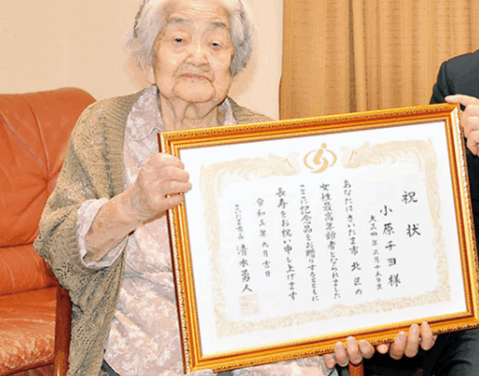 祝状
小原千ヨ様
大正四年三月十五日生
あなたはさいたま市北区の
女性最高年齢者となられました
ここに記念品をお贈りするとともに
長寿をお祝い申し上げます
令和三年九月吉日
さいたま市長 清水勇人